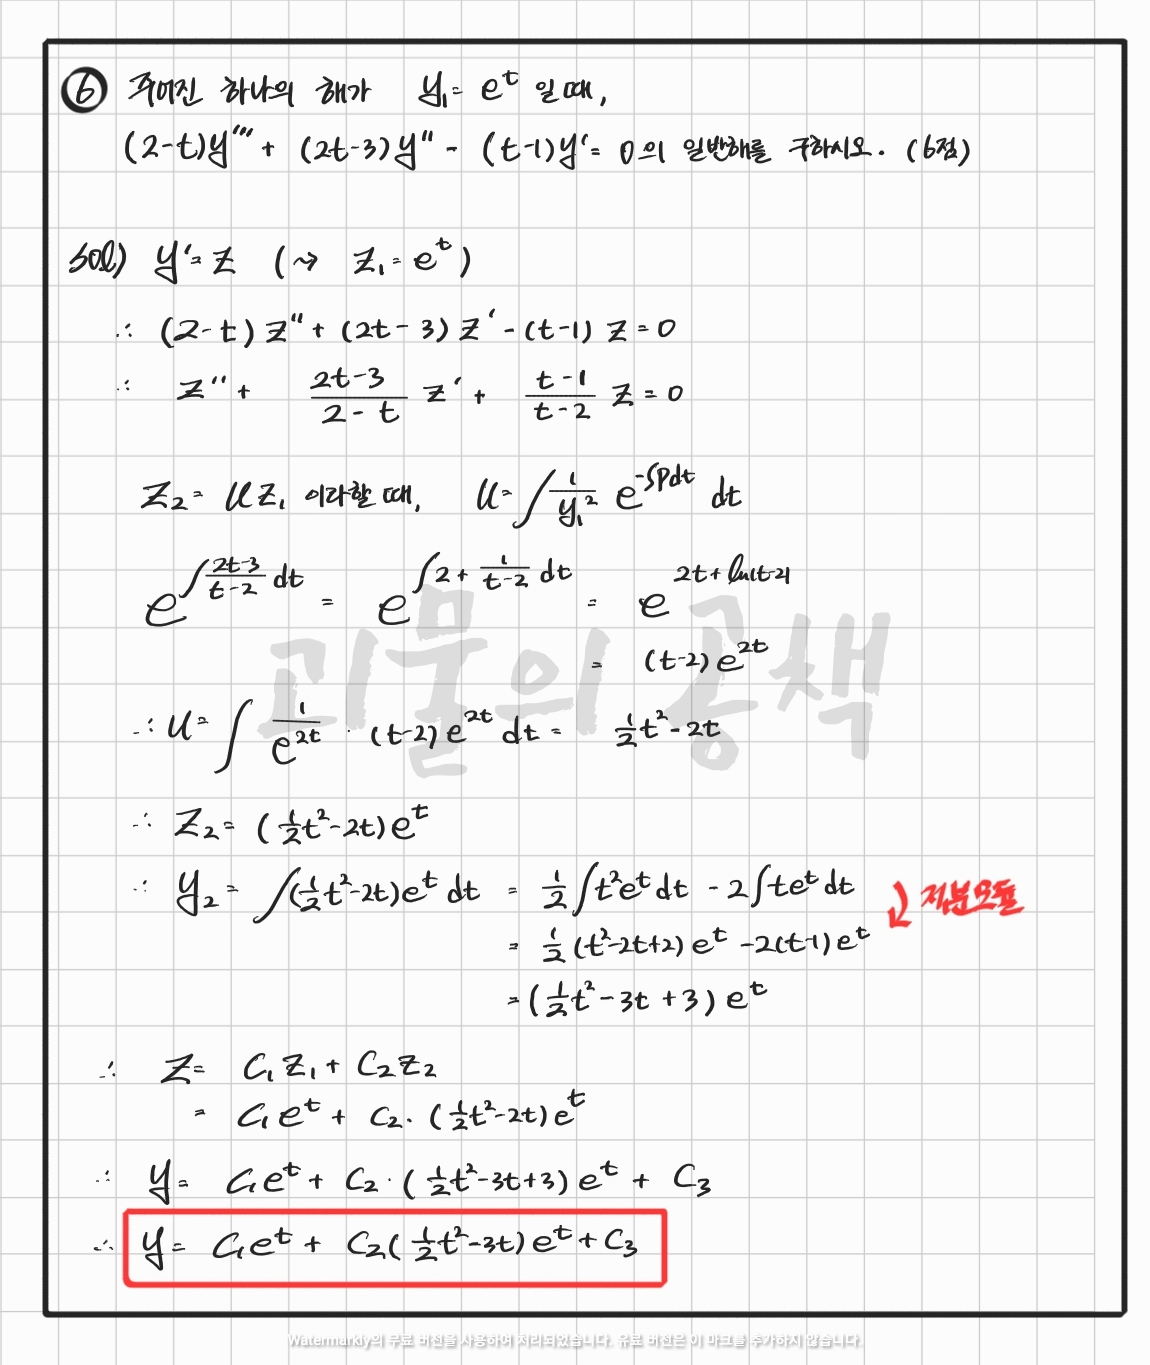 ⑥ 주어진 하나의 해가 y₁ = e^t 일 때,
(2-t)y''' + (2t-3)y'' - (t-1)y' = 0의 일반해를 구하시오. (6점)
sol) y' = z (⇝ z₁ = e^t)
∴ (2-t)z'' + (2t-3)z' - (t-1)z = 0
∴ z'' + (2t-3)/(2-t) z' + (t-1)/(t-2) z = 0
z₂ = uz₁ 이라할 때, u = ∫ 1/y₁² e^(-∫pdt) dt
e^(∫(2t-3)/(t-2) dt) = e^(∫2 + 1/(t-2) dt) = e^(2t + ln(t-2))
= (t-2)e^(2t)
∴ u = ∫ 1/e^(2t) · (t-2)e^(2t) dt = 1/2 t² - 2t
∴ z₂ = (1/2 t² - 2t)e^t
∴ y₂ = ∫(1/2 t² - 2t)e^t dt = 1/2 ∫t²e^t dt - 2∫te^t dt
적분모듈
= 1/2 (t²-2t+2)e^t - 2(t-1)e^t
= (1/2 t² - 3t + 3)e^t
∴ z = C₁z₁ + C₂z₂
= C₁e^t + C₂·(1/2 t² - 2t)e^t
∴ y = C₁e^t + C₂·(1/2 t² - 3t + 3)e^t + C₃
∴ y = C₁e^t + C₂(1/2 t² - 3t)e^t + C₃
괴물의 공책
Watermarkly의 무료 버전을 사용하여 처리되었습니다. 유료 버전은 이 마크를 추가하지 않습니다.